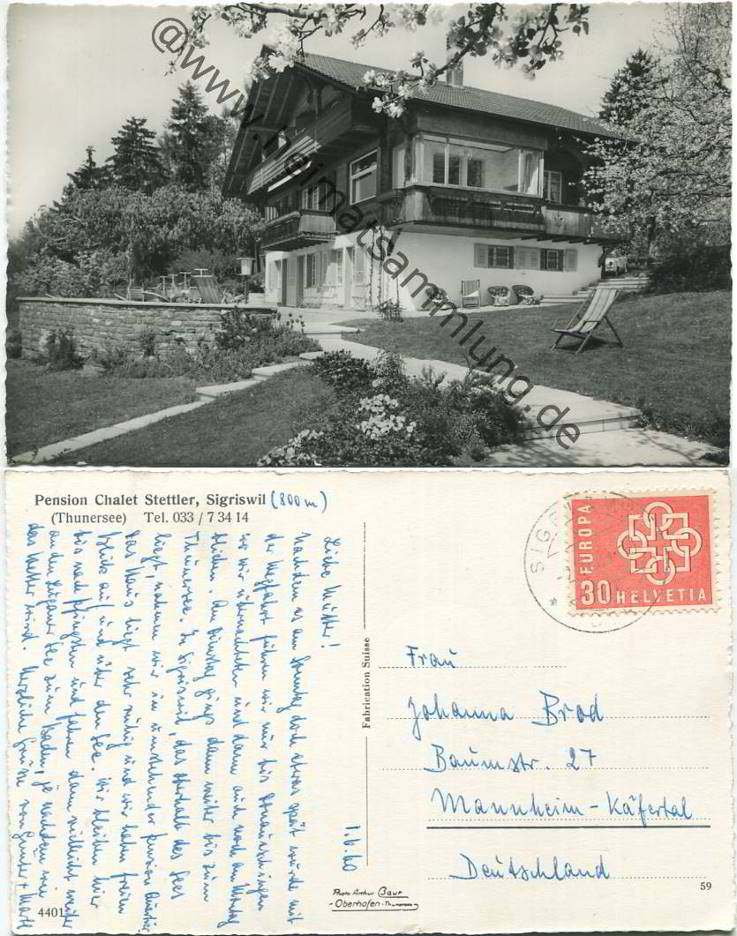 @www.heimatsammlung.de
Pension Chalet Stettler, Sigriswil (800 m)
(Thunersee) Tel. 033 / 7 34 14
1.6.60
Liebe Mutter!
Nachdem es am Sonntag doch etwas spät wurde mit
der Wegfahrt fuhren wir nur bis Donaueschingen
wo wir übernachteten und dann auch noch am Montag
blieben. Am Dienstag gings dann weiter bis zum
Thunersee. In Sigriswil, das oberhalb des Sees
liegt, nahmen wir in umstehender Pension Quartier.
Das Haus liegt sehr ruhig und wir haben freien
Blick auf und über den See. Wir bleiben hier
bis nach Pfingsten und fahren dann vielleicht weiter
an den See zum Baden, je nachdem wie
das Wetter wird. Herzliche Grüße von Gunter +
Fabrication Suisse
Photo Arthur Baur
-Oberhofen-Thunersee-
4401
SIGRISWIL
EUROPA
30 HELVETIA
Frau
Johanna Brod
Baumstr. 27
Mannheim-Käfertal
Deutschland
59